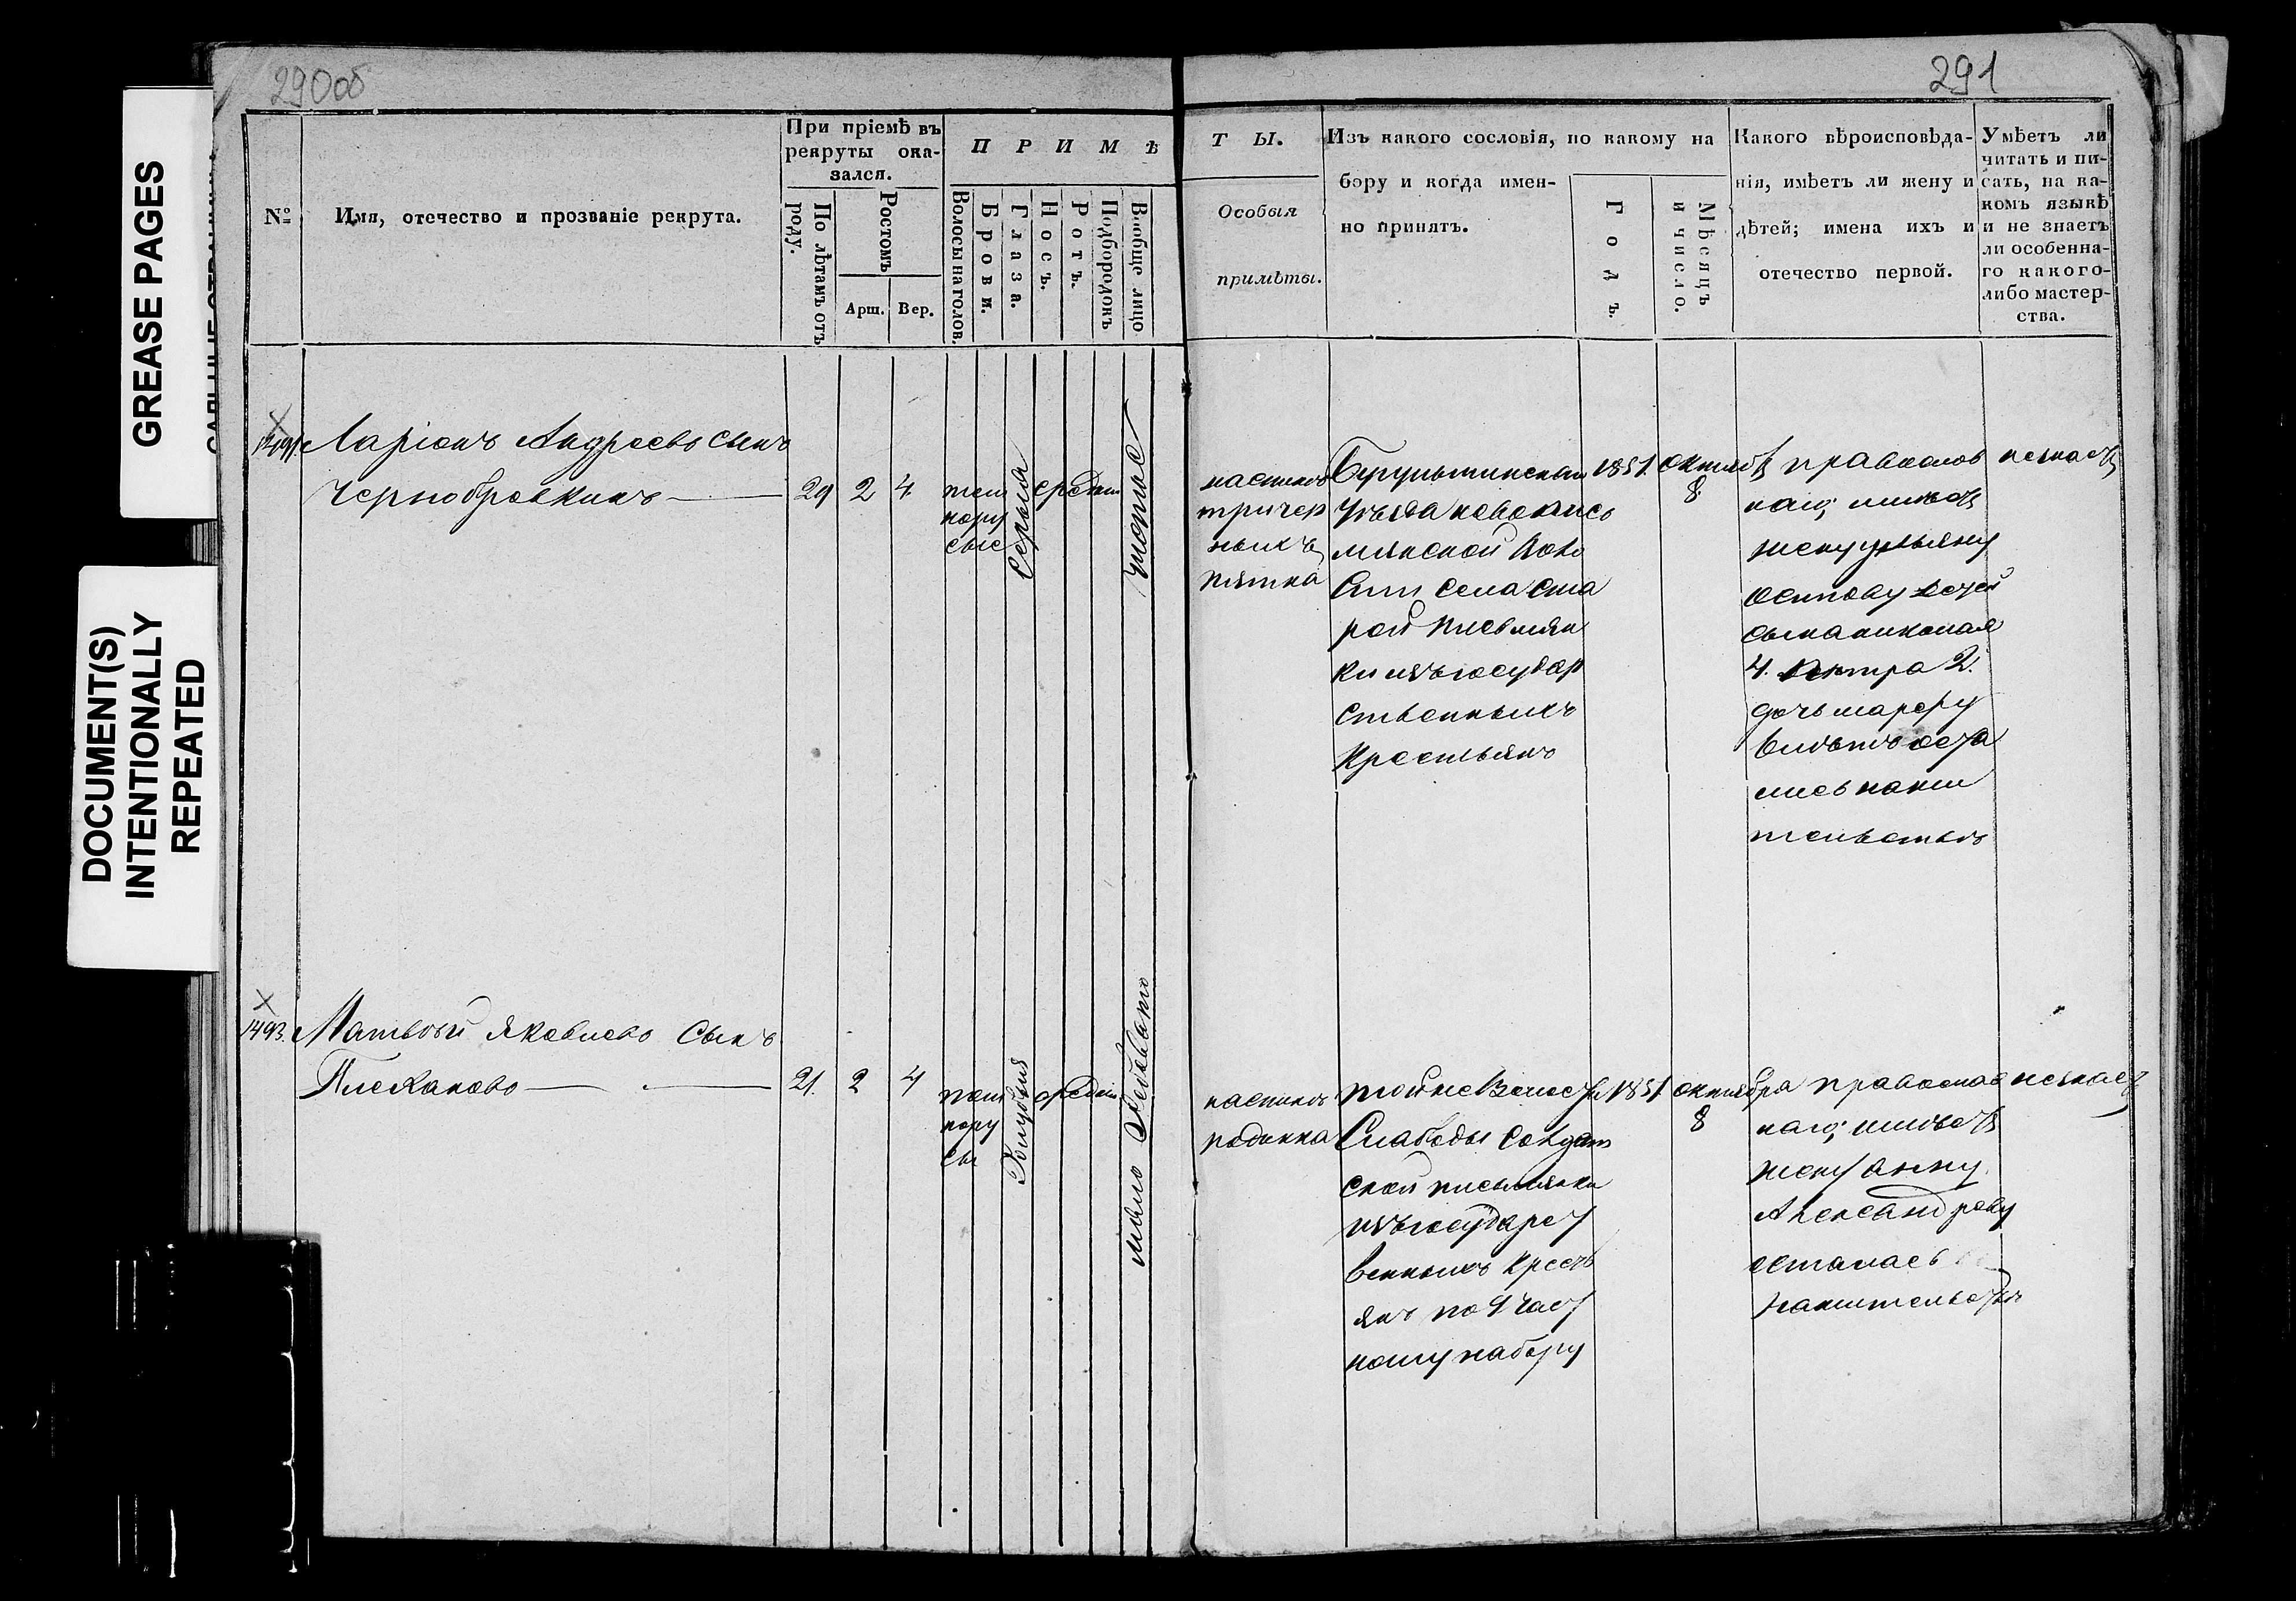 290об
291
GREASE PAGES
DOCUMENT(S)
INTENTIONALLY
REPEATED
№
Имя, отечество и прозваніе рекрута.
При пріемѣ въ
рекруты ока-
зался.
По лѣтамъ отъ
роду.
Ростомъ
Арш.
Вер.
П Р И М Ѣ
Волосы на голов.
Брови.
Глаза.
Носъ.
Ротъ.
Подбородокъ
Вообще лицо
Т Ы.
Особыя
примѣты.
Изъ какого сословія, по какому на
бору и когда имен-
но принятъ.
Годъ.
Мѣсяцъ
и число.
Какого вѣроисповѣда-
нія, имѣетъ ли жену и
дѣтей; имена ихъ и
отечество первой.
Умѣетъ ли
читать и пи-
сать, на ка-
комъ языкѣ
и не знаетъ
ли особенна-
го какого-
либо мастер-
ства.
Ларіонъ Андреевъ сынъ
Чернобровкинъ
29 2 4
темн
нору
сые
Серыя
средн
чистое
три чер
ныхъ
пятна
Бугульминскаго
уѣзда новопись
мянской воло
сти села Ста
рой Письмян
ки изъ государ
ственныхъ
крестьянъ
1851
октября
8
православ
наго, имѣетъ
жену ульяну
Осипову детей
сына николая
4. петра 2.
дочь марфу
оста
лись на жи
тельствѣ
незнаетъ
1493.
Матвѣй Яковлевъ сынъ
Плехановъ
21. 2 4
темн
нору
сы
Голубыя
средн
родинка
той же волости
Слободы Солдат
ской письмянки
изъ государст
венныхъ крестъ
янъ по част
ному набору
1851
октября
8
православ
наго, имѣетъ
жену анну
Александрову
осталась
на жительствѣ
незнаетъ